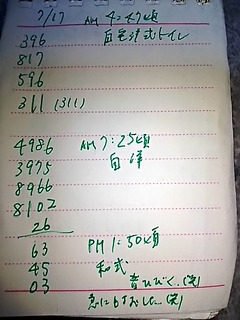 7/17 AM 4:47頃
396 自宅洋式トイレ
817
596
311 (311)
4986 AM 7:25頃
3975 自洋
8966
8102
26
63 PM 1:50頃
45 和式
03 音ひびく..(笑)
急にもよおした..(笑)